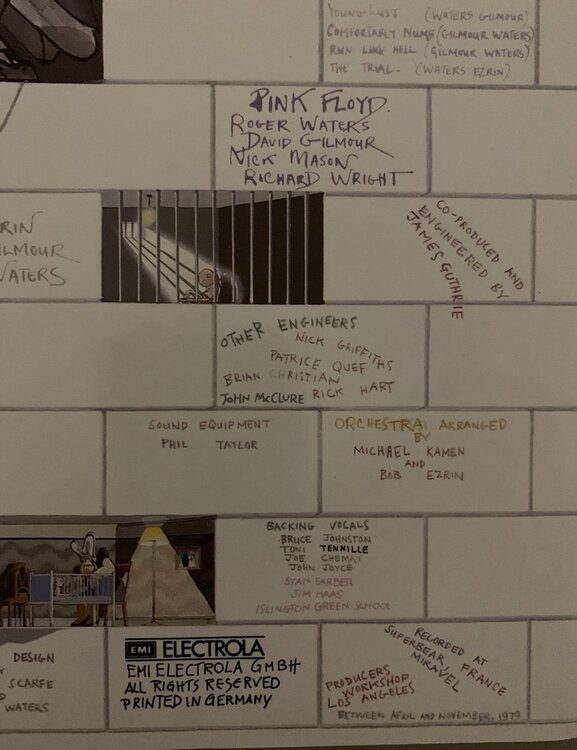 YOUNG LUST (WATERS GILMOUR)
COMFORTABLY NUMB (GILMOUR WATERS)
RUN LIKE HELL (GILMOUR WATERS)
THE TRIAL (WATERS EZRIN)
PINK FLOYD.
ROGER WATERS
DAVID GILMOUR
NICK MASON
RICHARD WRIGHT
RIN
ILMOUR
WATERS
CO-PRODUCED AND
ENGINEERED BY
JAMES GUTHRIE
OTHER ENGINEERS
NICK GRIFFITHS
PATRICE QUEF
BRIAN CHRISTIAN
RICK HART
JOHN McCLURE
SOUND EQUIPMENT
PHIL TAYLOR
ORCHESTRA ARRANGED
BY
MICHAEL KAMEN
AND
BOB EZRIN
BACKING VOCALS
BRUCE JOHNSTON
TONI TENNILLE
JOE CHEMAY
JOHN JOYCE
STAN FARBER
JIM HAAS
ISLINGTON GREEN SCHOOL
DESIGN
Y
SCARFE
D
WATERS
EMI ELECTROLA
EMI ELECTROLA GMBH
ALL RIGHTS RESERVED
PRINTED IN GERMANY
RECORDED AT
SUPERBEAR, FRANCE
MIRAVEL
PRODUCERS
WORKSHOP
LOS ANGELES
BETWEEN APRIL AND NOVEMBER, 1979